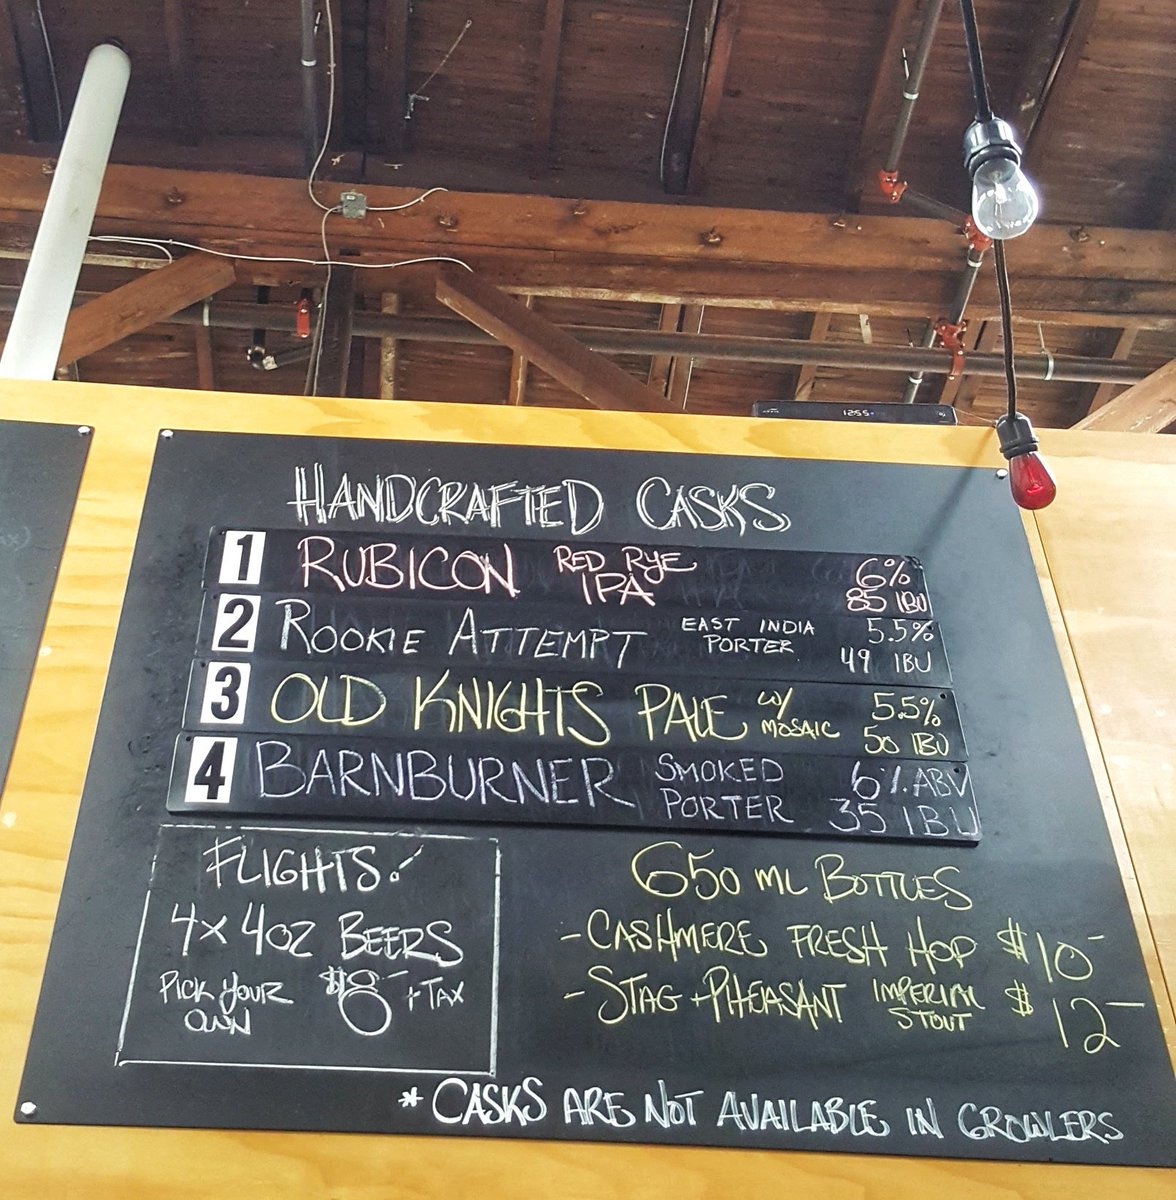 1255
HANDCRAFTED CASKS
1 RUBICON RED RYE IPA 6% 85 IBU
2 ROOKIE ATTEMPT EAST INDIA PORTER 5.5% 49 IBU
3 OLD KNIGHTS PALE W/ MOSAIC 5.5% 50 IBU
4 BARNBURNER SMOKED PORTER 6% ABV 35 IBU
FLIGHTS!
4x 4oz BEERS
PICK YOUR OWN $8- + TAX
650 ML BOTTLES
- CASHMERE FRESH HOP $10-
- STAG + PHEASANT IMPERIAL STOUT $12-
* CASKS ARE NOT AVAILABLE IN GROWLERS